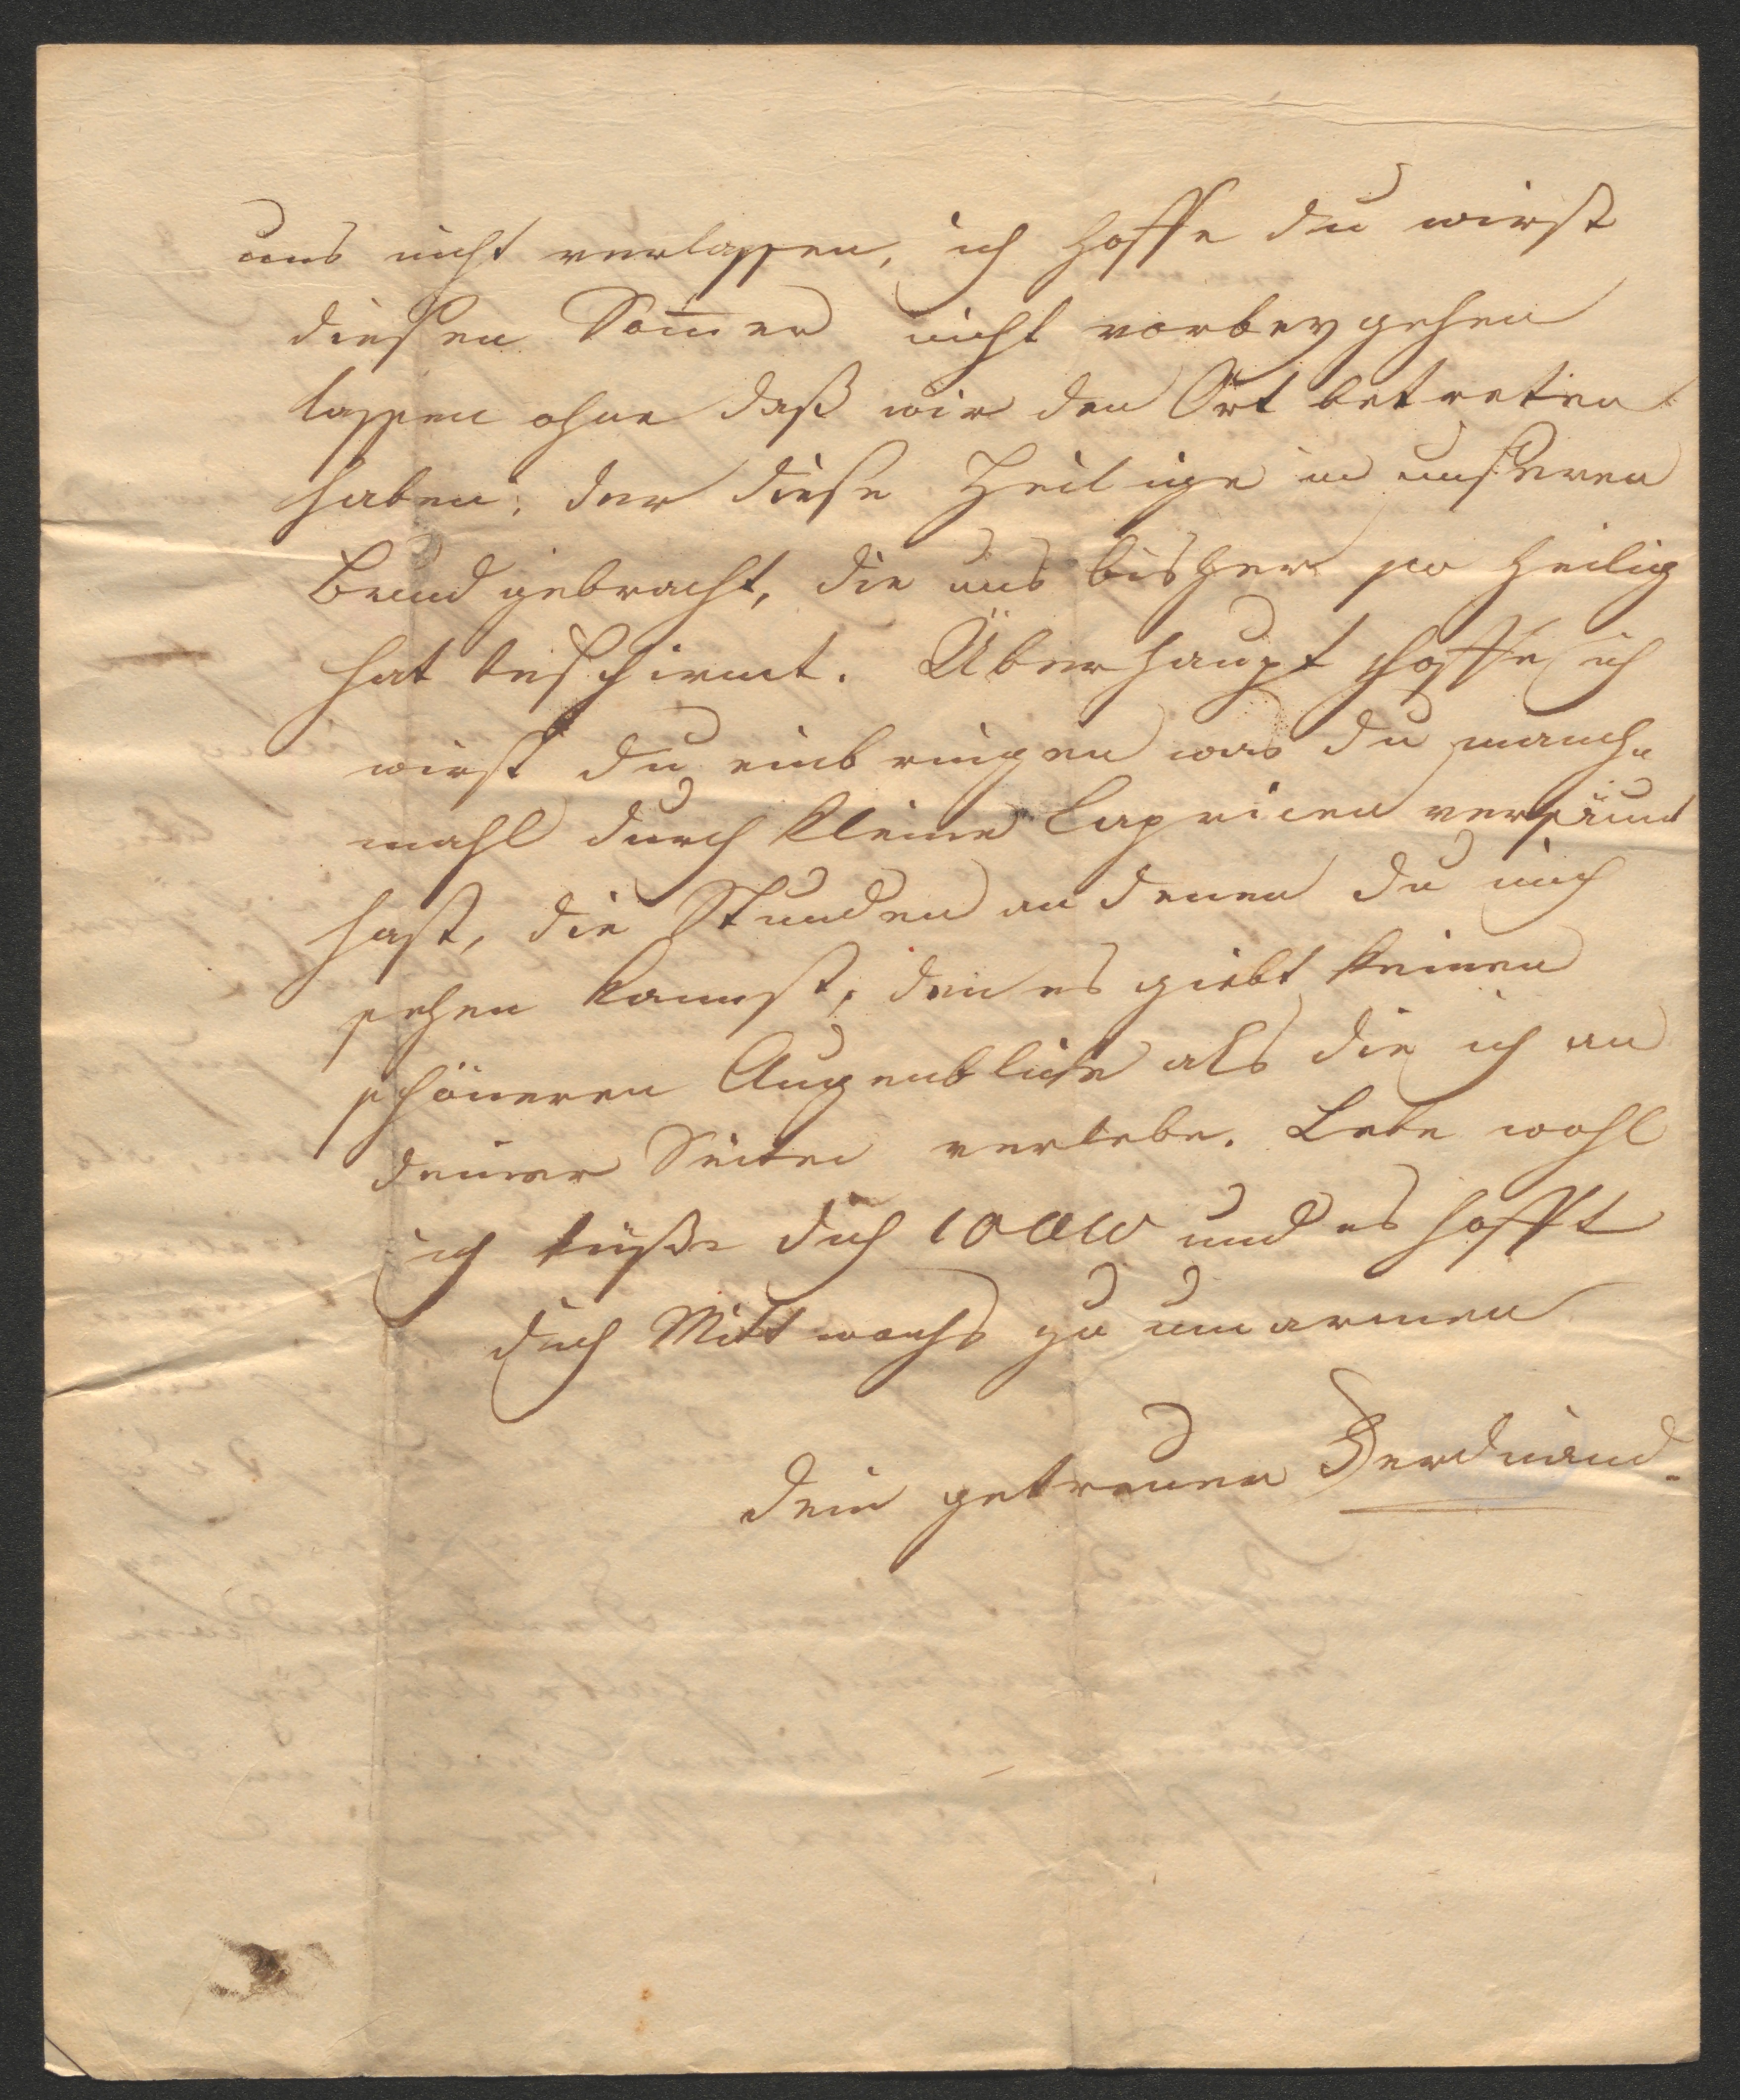 uns nicht verlassen, ich hoffe du wirst
diesen Som̅er nicht vorbey gehen
lassen ohne daß wir den Ort betreten
haben; der diese Heilige in unseren
Bund gebracht, die uns bisher so heilig
hat beschirmt. Überhaupt hoffe ich
wirst du einbringen was du manch
mahl durch kleine Capricen versäumt
hast, die Stunden an denen du mich
sehen kannst, den es giebt keinen
schöneren Augenblicke als die ich an
deiner Seiten verlebe. Lebe wohl
ich küße dich 1000 und es hofft
dich Mittwochs zu umarmen
dein getreuer Ferdinand.